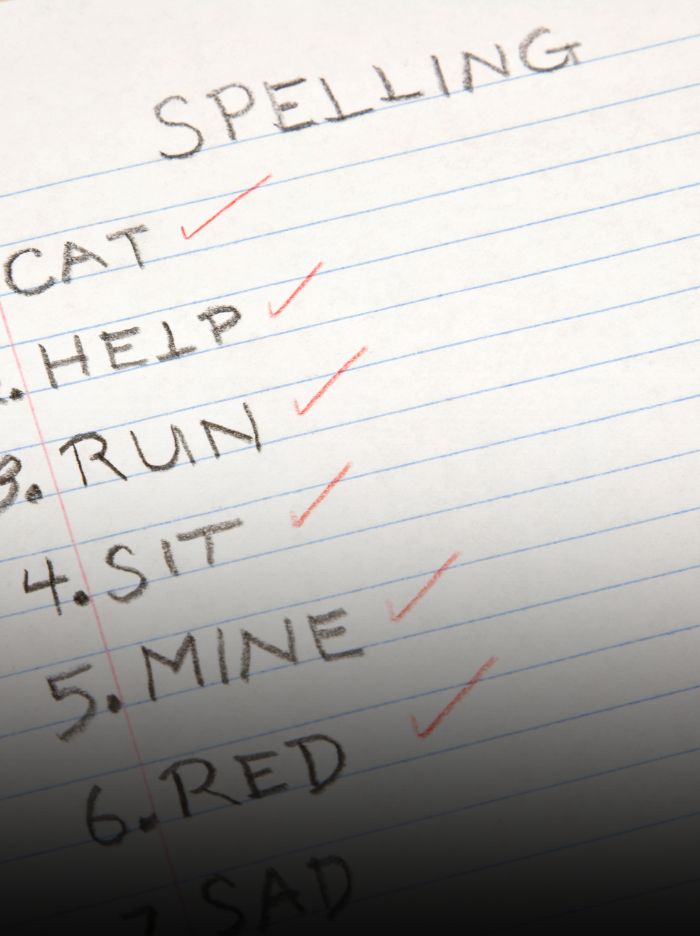 SPELLING
CAT
. HELP
3. RUN
4. SIT
5. MINE
6. RED
7. SAD